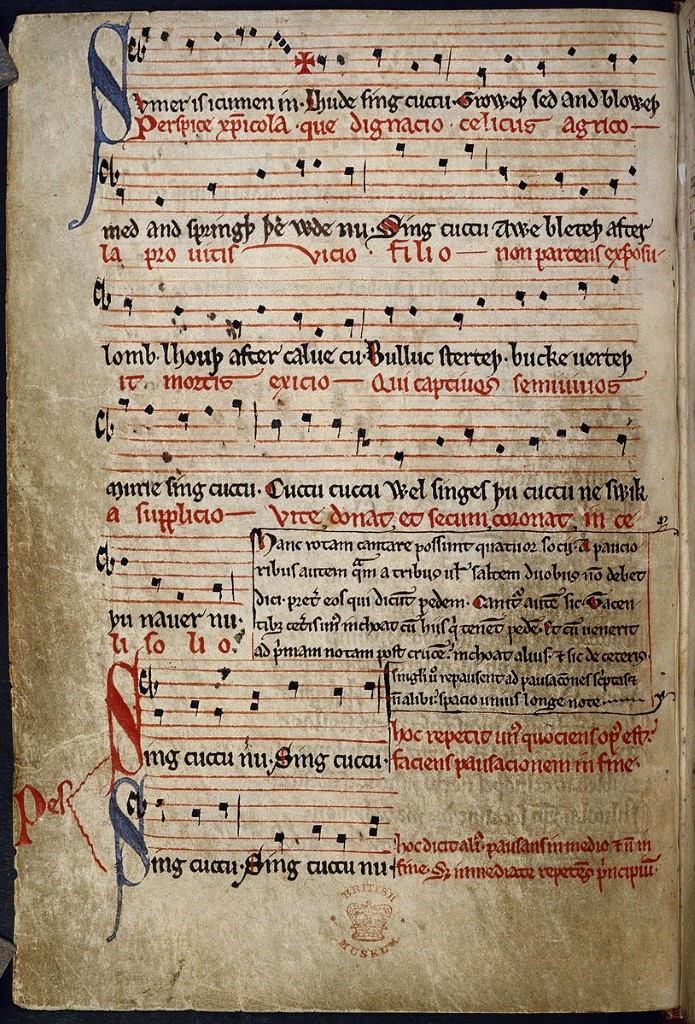 Svmer is icumen in. Lhude sing cuccu. Groweþ sed and bloweþ
Perspice xp̄icola. que dignacio. celicus agrico
med and springþ þe wde nu. Sing cuccu Awe bleteþ after
la pro uitis vicio. filio non parcens exposu
lomb. lhouþ after calue cu. Bulluc sterteþ. bucke uerteþ
it mortis exicio Qui captiuos semiuiuos
murie sing cuccu. Cuccu cuccu Wel singes þu cuccu ne swik
a supplicio Vite donat et secum coronat in ce
þu nauer nu.
li so li o.
Hanc rotam cantare possunt quatuor socij. A paucio
ribus autem qᷓm a tribus ul' saltem duobus nō debet
dici. pret' eos qui dicūt pedem. Canit' aūt sic. Tacen
tibꝫ cet'is un' inchoat cū hijs q' tenēt pedē. Et cū uenerit
ad p'mam notam post crucē. inchoat alius. & sic de ceteris.
singli ū repausent ad pausacōnes sc'ptas &
nō alibi. spacio unius longe note
Sing cuccu nu. Sing cuccu.
hoc repetit un' quociens op' est.
faciens pausacionem in fine.
Pes
Sing cuccu. Sing cuccu nu
hoc dicit ali'. pausans in medio & nō in
fine. Sꝫ inmediate repetēs p'ncipiū.
BRITISH
MUSEUM